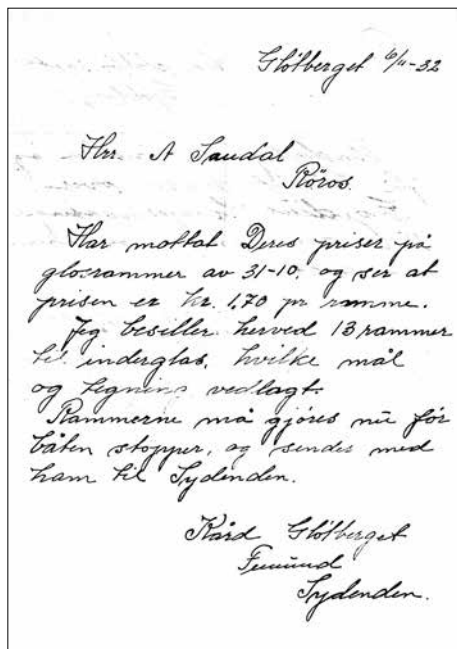 Glötberget 6/11-32
Hrr. A Saudal
Röros.
Har mottat Deres priser på
glasrammer av 31-10, og ser at
prisen er kr. 1,70 pr ramme.
Jeg bestiller herved 13 rammer
til inderglas, hvilke mål
og tegning vedlagt.
Rammerne må gjöres nu för
båten stopper, og sendes med
ham til Sydenden.
Kård Glötberget
Femund
Sydenden.